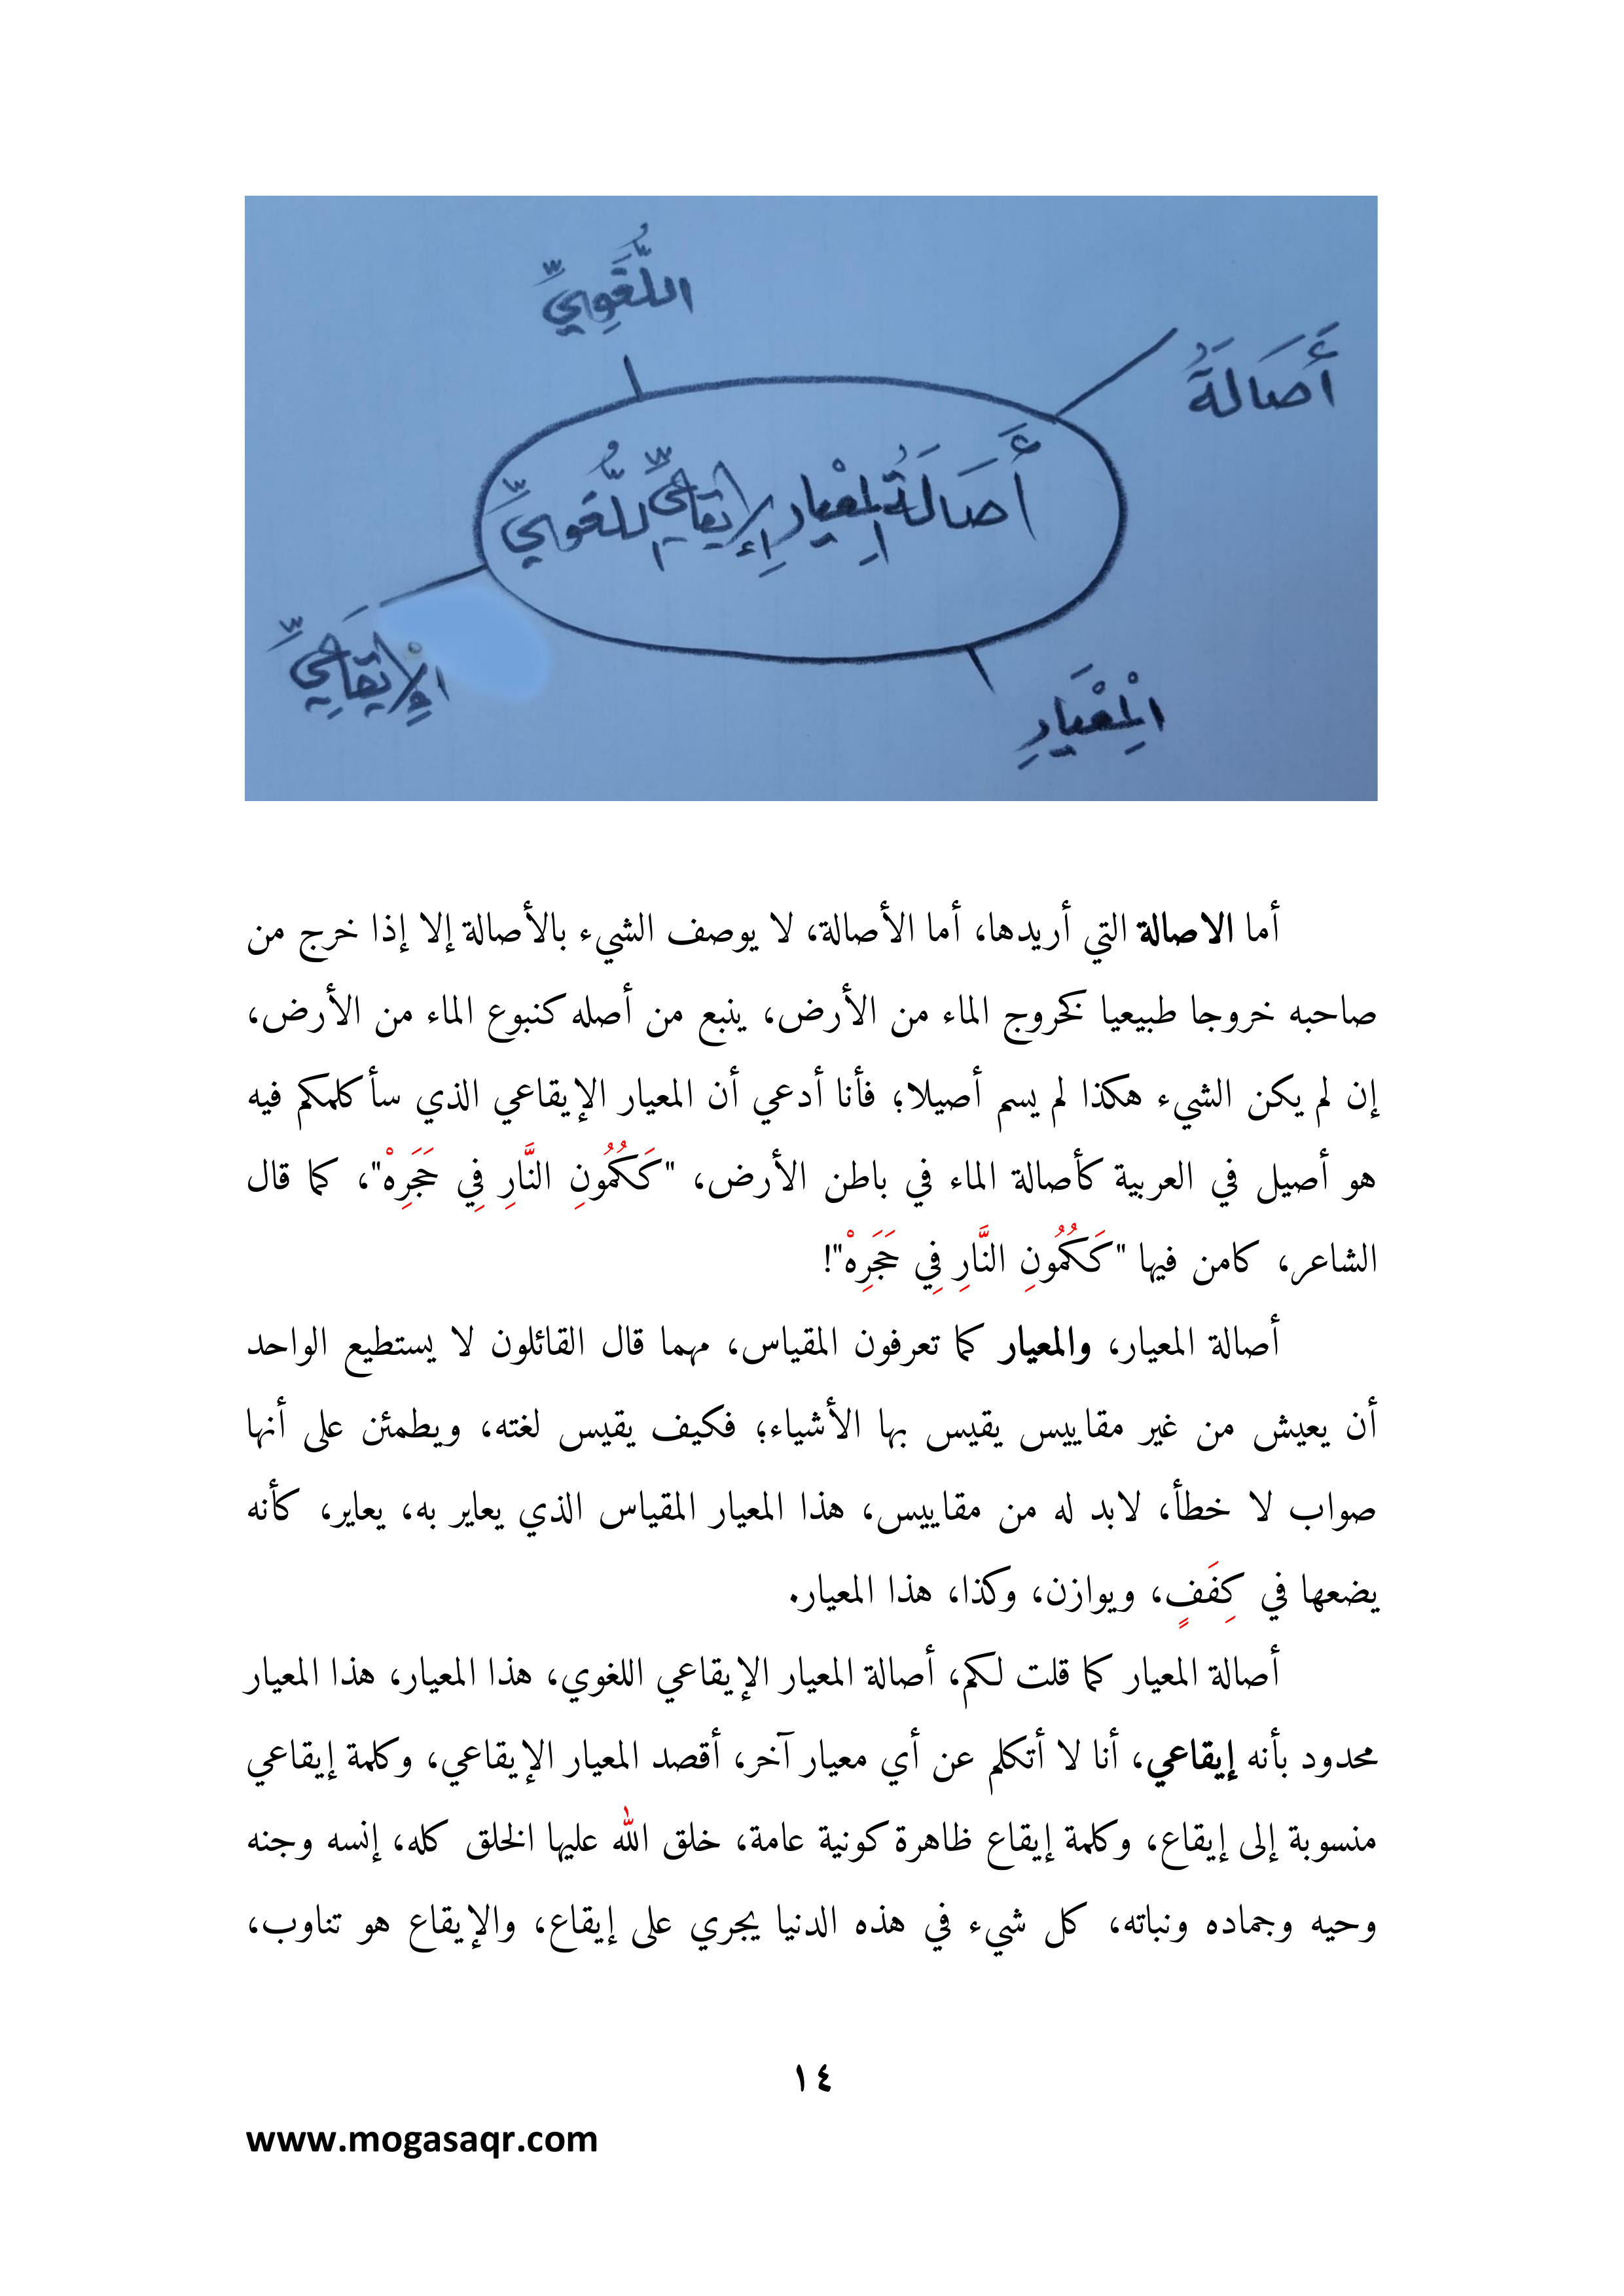 اللُّغَوِيِّ
أَصَالَةُ
أَصَالَةُ الْمِعْيَارِ الْإِيقَاعِيِّ اللُّغَوِيِّ
الْإِيقَاعِيِّ
الْمِعْيَارِ
أما الاصالة التي أريدها، أما الأصالة، لا يوصف الشيء بالأصالة إلا إذا خرج من
صاحبه خروجا طبيعيا كخروج الماء من الأرض، ينبع من أصله كنبوع الماء من الأرض،
إن لم يكن الشيء هكذا لم يسم أصيلا؛ فأنا أدعي أن المعيار الإيقاعي الذي سأكلمكم فيه
هو أصيل في العربية كأصالة الماء في باطن الأرض، "كَكُمُونِ النَّارِ فِي حَجَرِهْ"، كما قال
الشاعر، كامن فيها "كَكُمُونِ النَّارِ فِي حَجَرِهْ"!
أصالة المعيار، والمعيار كما تعرفون المقياس، مهما قال القائلون لا يستطيع الواحد
أن يعيش من غير مقاييس يقيس بها الأشياء؛ فكيف يقيس لغته، ويطمئن على أنها
صواب لا خطأ، لابد له من مقاييس، هذا المعيار المقياس الذي يعاير به، يعاير، كأنه
يضعها في كِفَفٍ، ويوازن، وكذا، هذا المعيار.
أصالة المعيار كما قلت لكم، أصالة المعيار الإيقاعي اللغوي، هذا المعيار، هذا المعيار
محدود بأنه إيقاعي، أنا لا أتكلم عن أي معيار آخر، أقصد المعيار الإيقاعي، وكلمة إيقاعي
منسوبة إلى إيقاع، وكلمة إيقاع ظاهرة كونية عامة، خلق الله عليها الخلق كله، إنسه وجنه
وحيه وجماده ونباته، كل شيء في هذه الدنيا يجري على إيقاع، والإيقاع هو تناوب،
١٤
www.mogasaqr.com